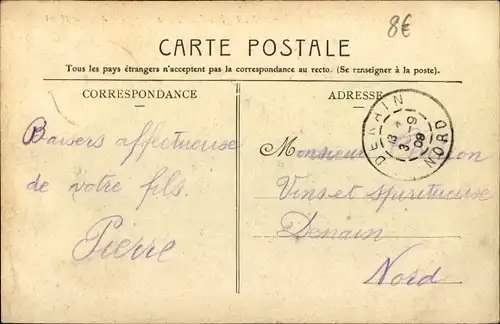 8€
CARTE POSTALE
Tous les pays étrangers n'acceptent pas la correspondance au recto. (Se renseigner à la poste).
CORRESPONDANCE
ADRESSE
DENAIN
NORD
Baisers affectueuse
de votre fils.
Pierre.
Monsieur
Vins et Spiritueuse
Denain
Nord